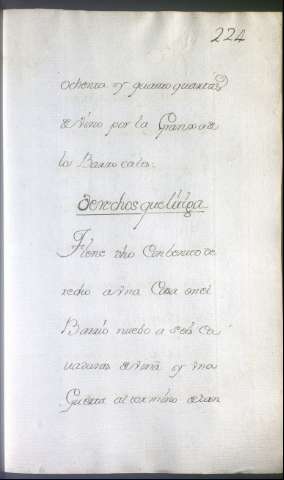 224
ochenta y quatro quartas
de Vino por la Granxa de
los Barro cales.
Derechos que litiga
Tiene dho Conbento de
recho a vna Casa en el
Barrio nuebo a seis ca
uaduras de viña y vna
Guerta al termino de San